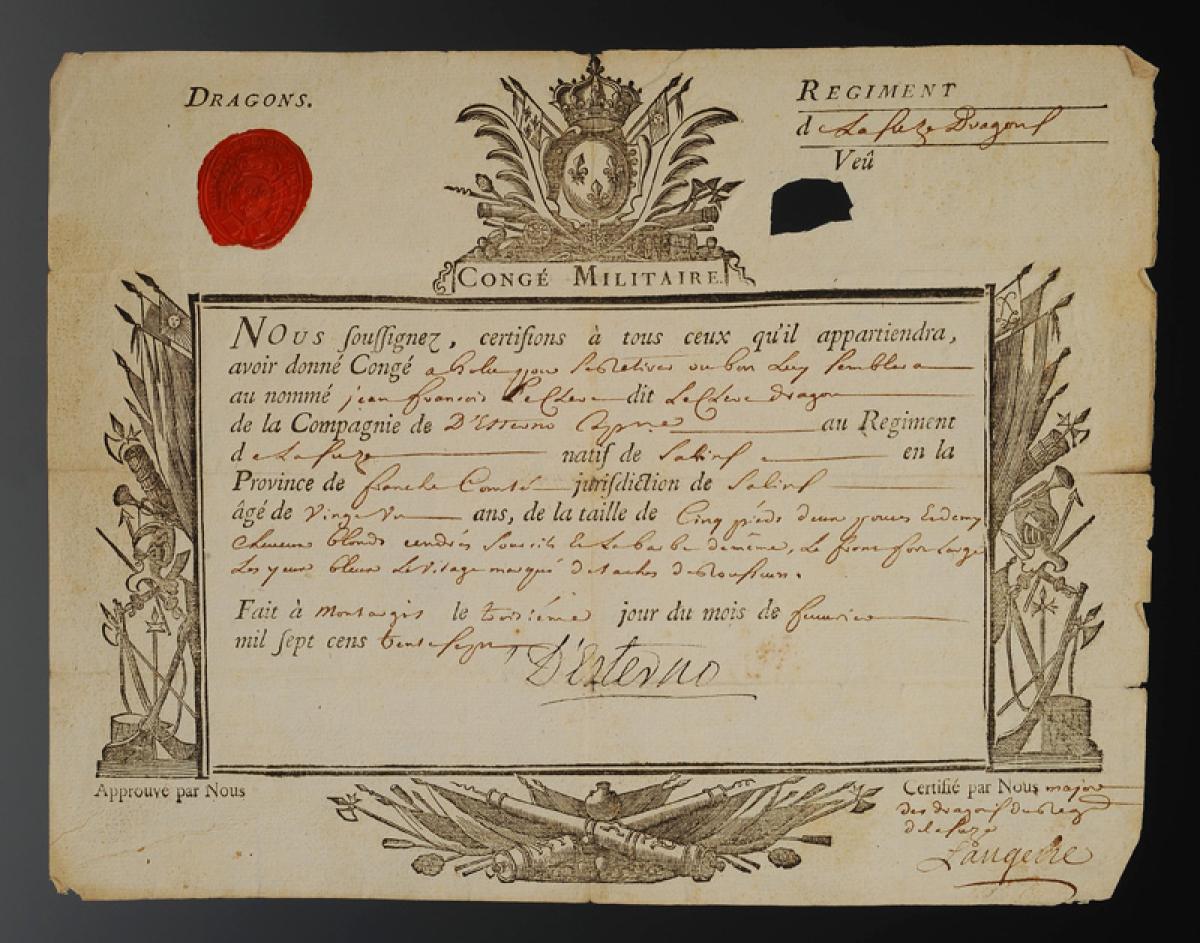 DRAGONS.
REGIMENT
de La Suze Dragons
Veû
CONGÉ MILITAIRE.
NOUS souſſignez, certifions à tous ceux qu'il appartiendra,
avoir donné Congé absolu pour se Retirer ou bon Luy semblera
au nommé jean francois LeClerc dit LeClerc dragon
de la Compagnie de D'Esterno au Regiment
de La Suze natif de Salins en la
Province de franche Comté jurifdiction de Salins
âgé de Vingt Un ans, de la taille de Cinq pieds deux pouces Et demy
cheveux blonds cendrés Sourcils Et La barbe de même, Le front fort Large
Les yeux bleux Le Visage marqué de taches de Rousseur.
Fait à montargis le troisiéme jour du mois de feuurier
mil ſept cens trente sept
D'Esterno
Approuvé par Nous
Certifié par Nous major
des dragons du Reg
de la Suze
Laugerie